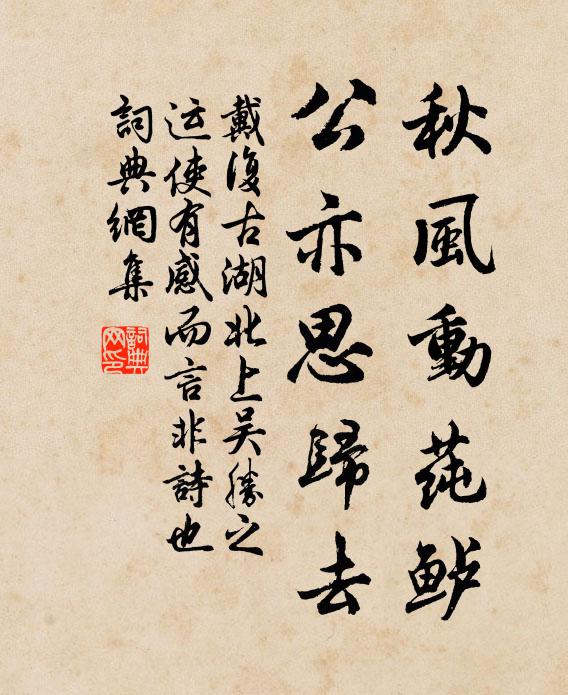 秋風動莼鲈
公亦思歸去
戴復古湖北上吴勝之
运使有感而言非詩也
詞典網集
詞典网印